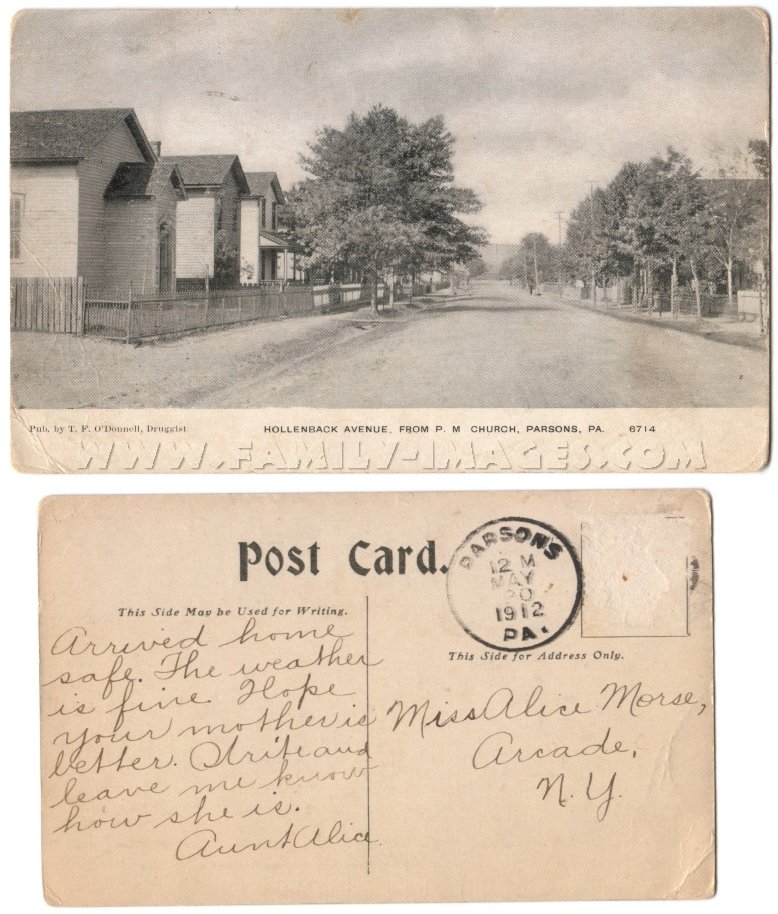 Pub. by T. F. O'Donnell, Druggist
HOLLENBACK AVENUE, FROM P. M CHURCH, PARSONS, PA. 6714
WWW.FAMILY-IMAGES.COM
Post Card.
PARSONS
12 M
MAY
20
1912
PA.
This Side May be Used for Writing.
This Side for Address Only.
Arrived home
safe. The weather
is fine. Hope
your mother is
better. Write and
leave me know
how she is.
Aunt Alice.
Miss Alice Morse,
Arcade,
N.Y.